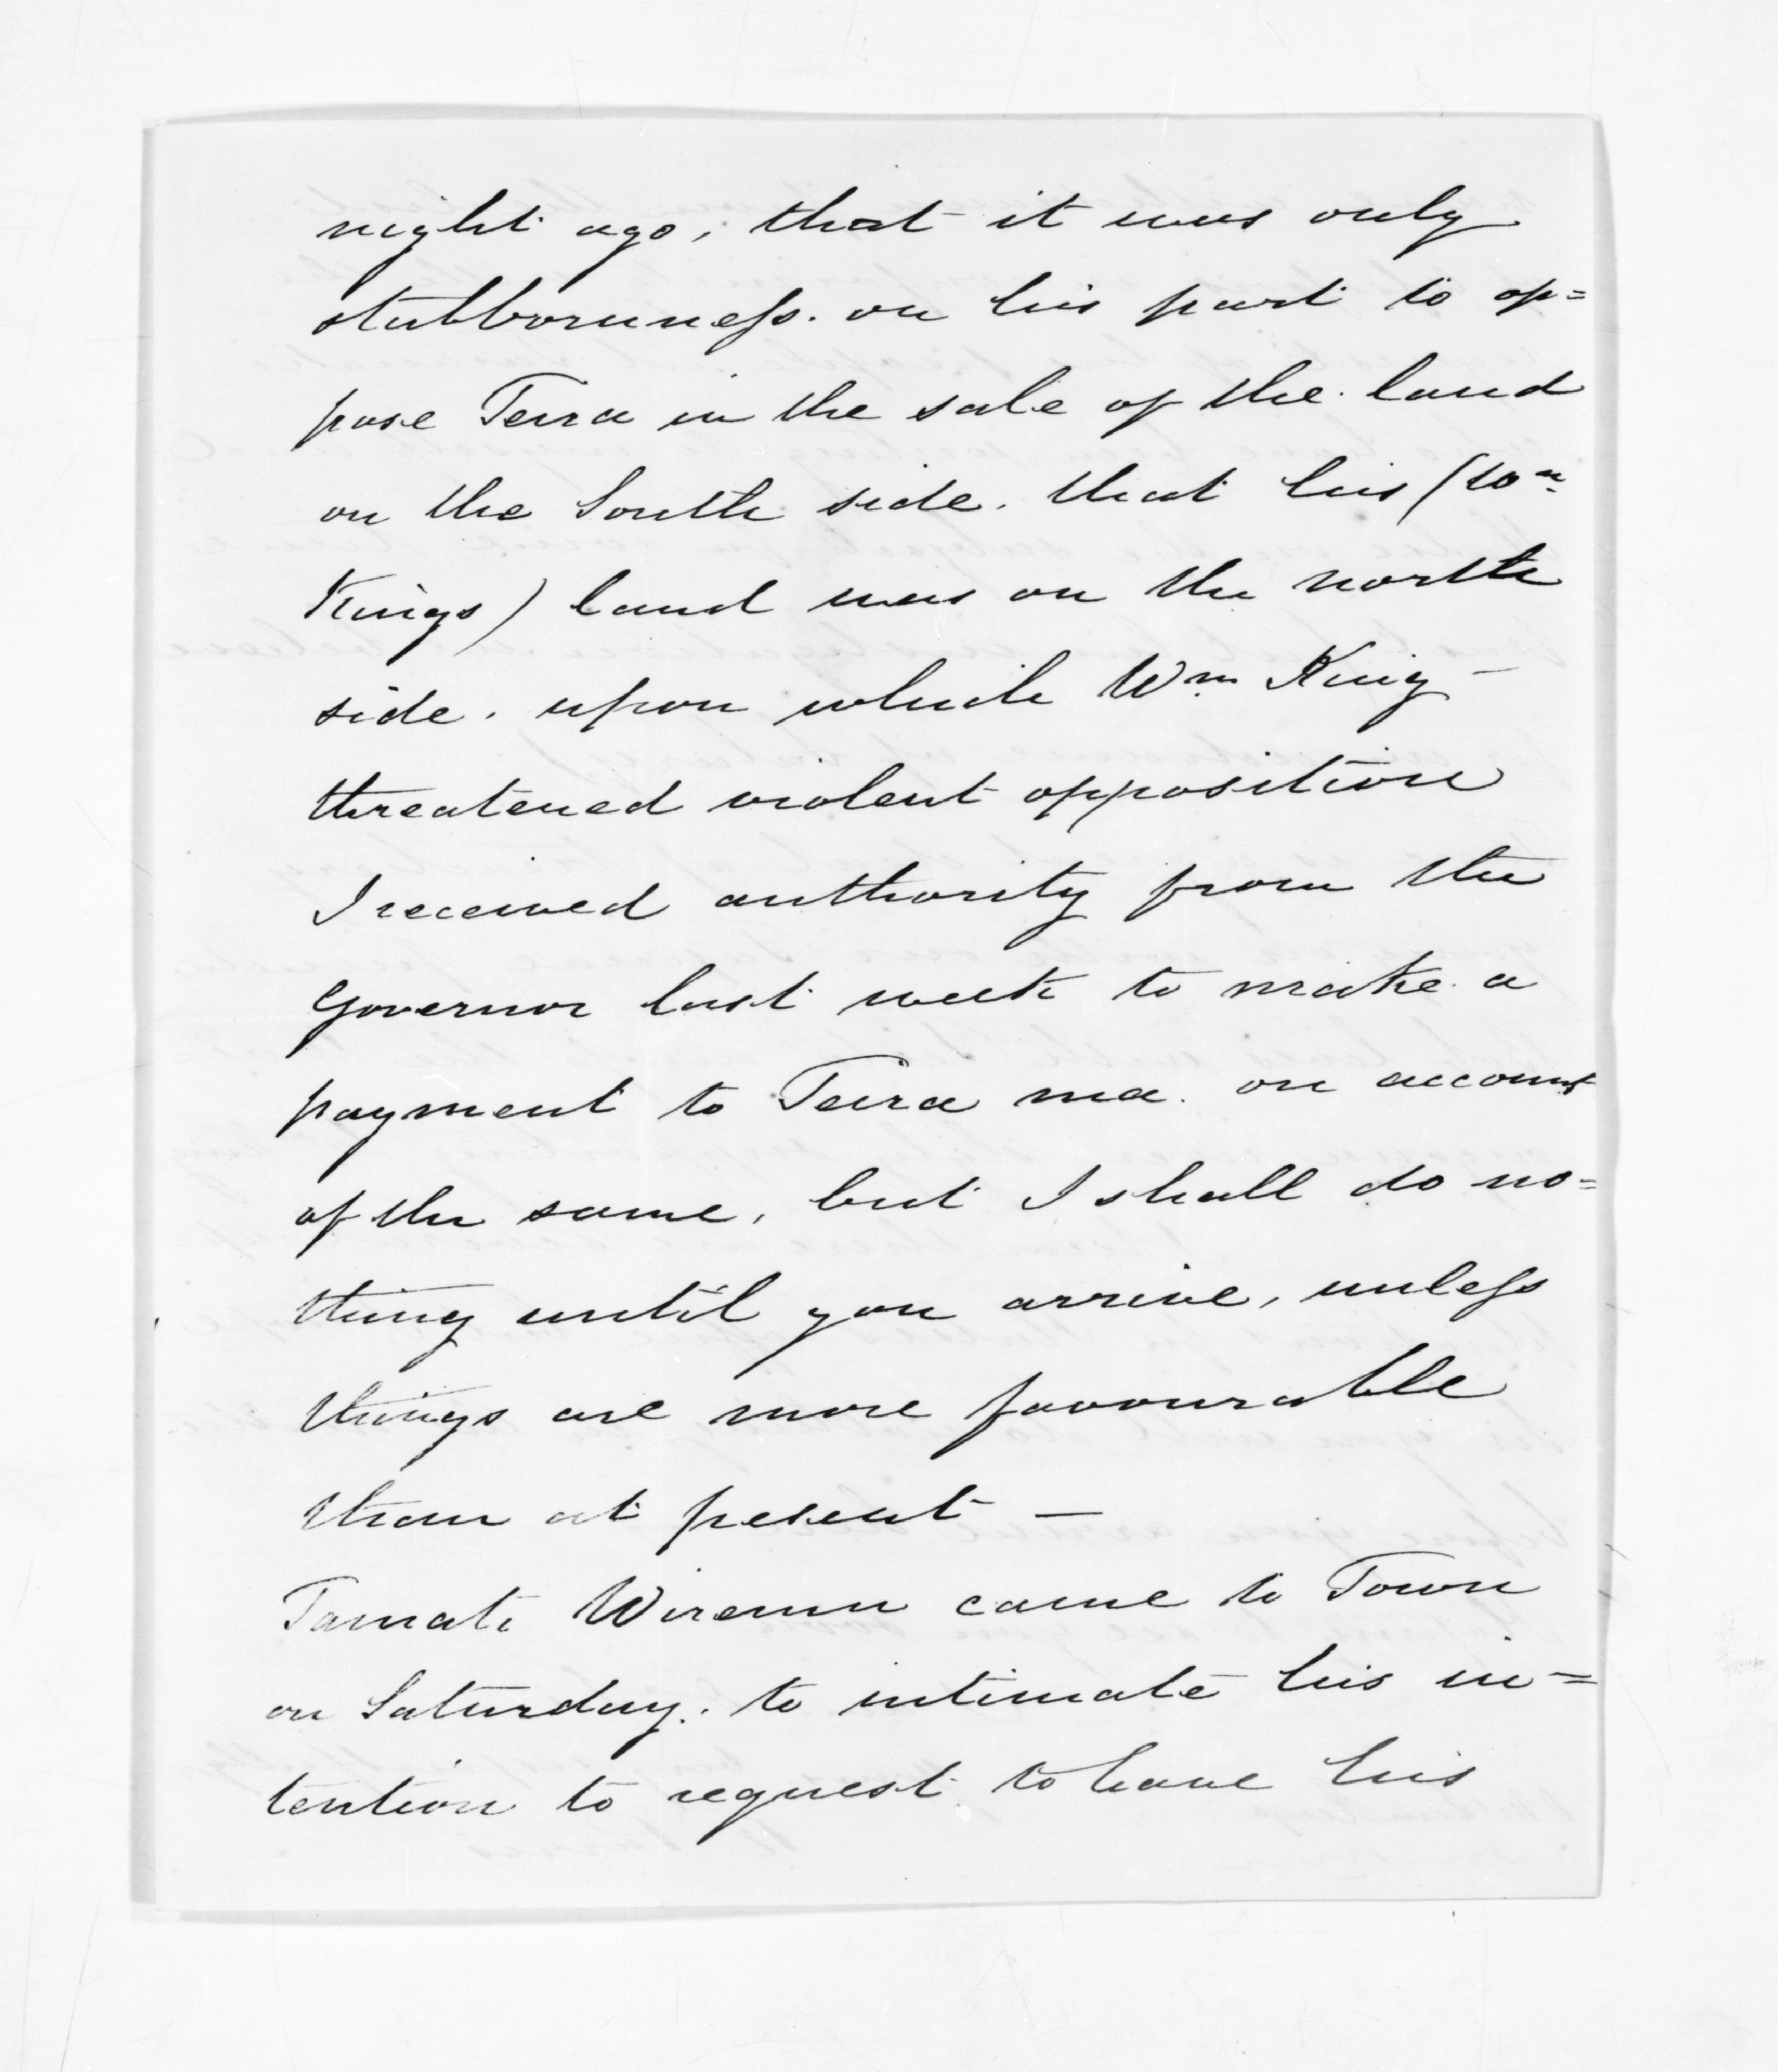 night ago, that it was only
stubbornness. on his part to op=
pose Teira in the sale of the land
on the South side. that his (Wm
Kings) land was on the north
side. upon which Wm King -
threatened violent opposition
I received authority from the
Governor last week to make a
payment to Teira ma. on account
of the same, but I shall do no=
thing until you arrive, unless
things are more favourable
than at present —
Tamati Wiremu came to Town
on Saturday. to intimate his in=
tention to request to have his